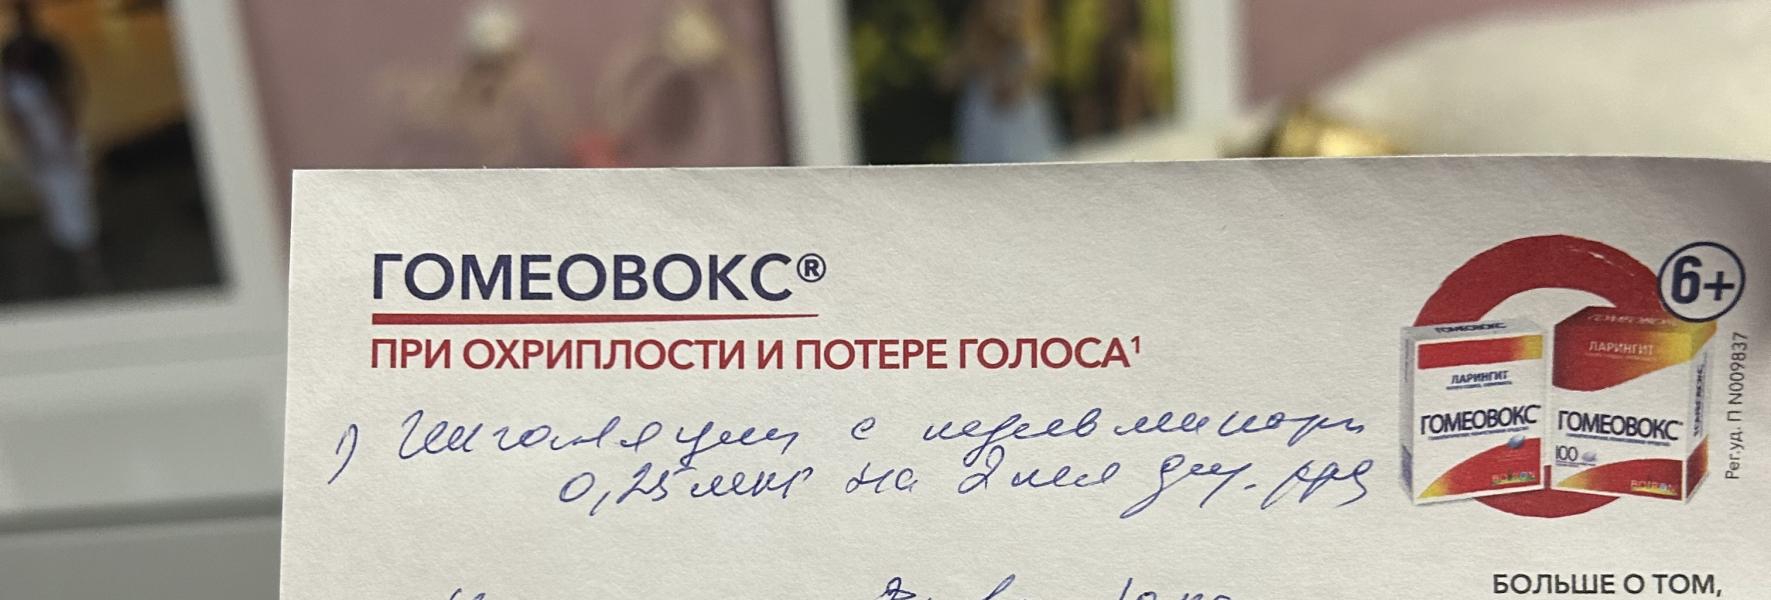 ГОМЕОВОКС®
ПРИ ОХРИПЛОСТИ И ПОТЕРЕ ГОЛОСА¹
6+
ГОМЕОВОКС
ЛАРИНГИТ
ГОМЕОВОКС
ЛАРИНГИТ
ГОМЕОВОКС
100
BOIRON
BOIRON
Рег.уд. П N009837
1) Ингаляции с
0,25 мкг на 2 мл
БОЛЬШЕ О ТОМ,